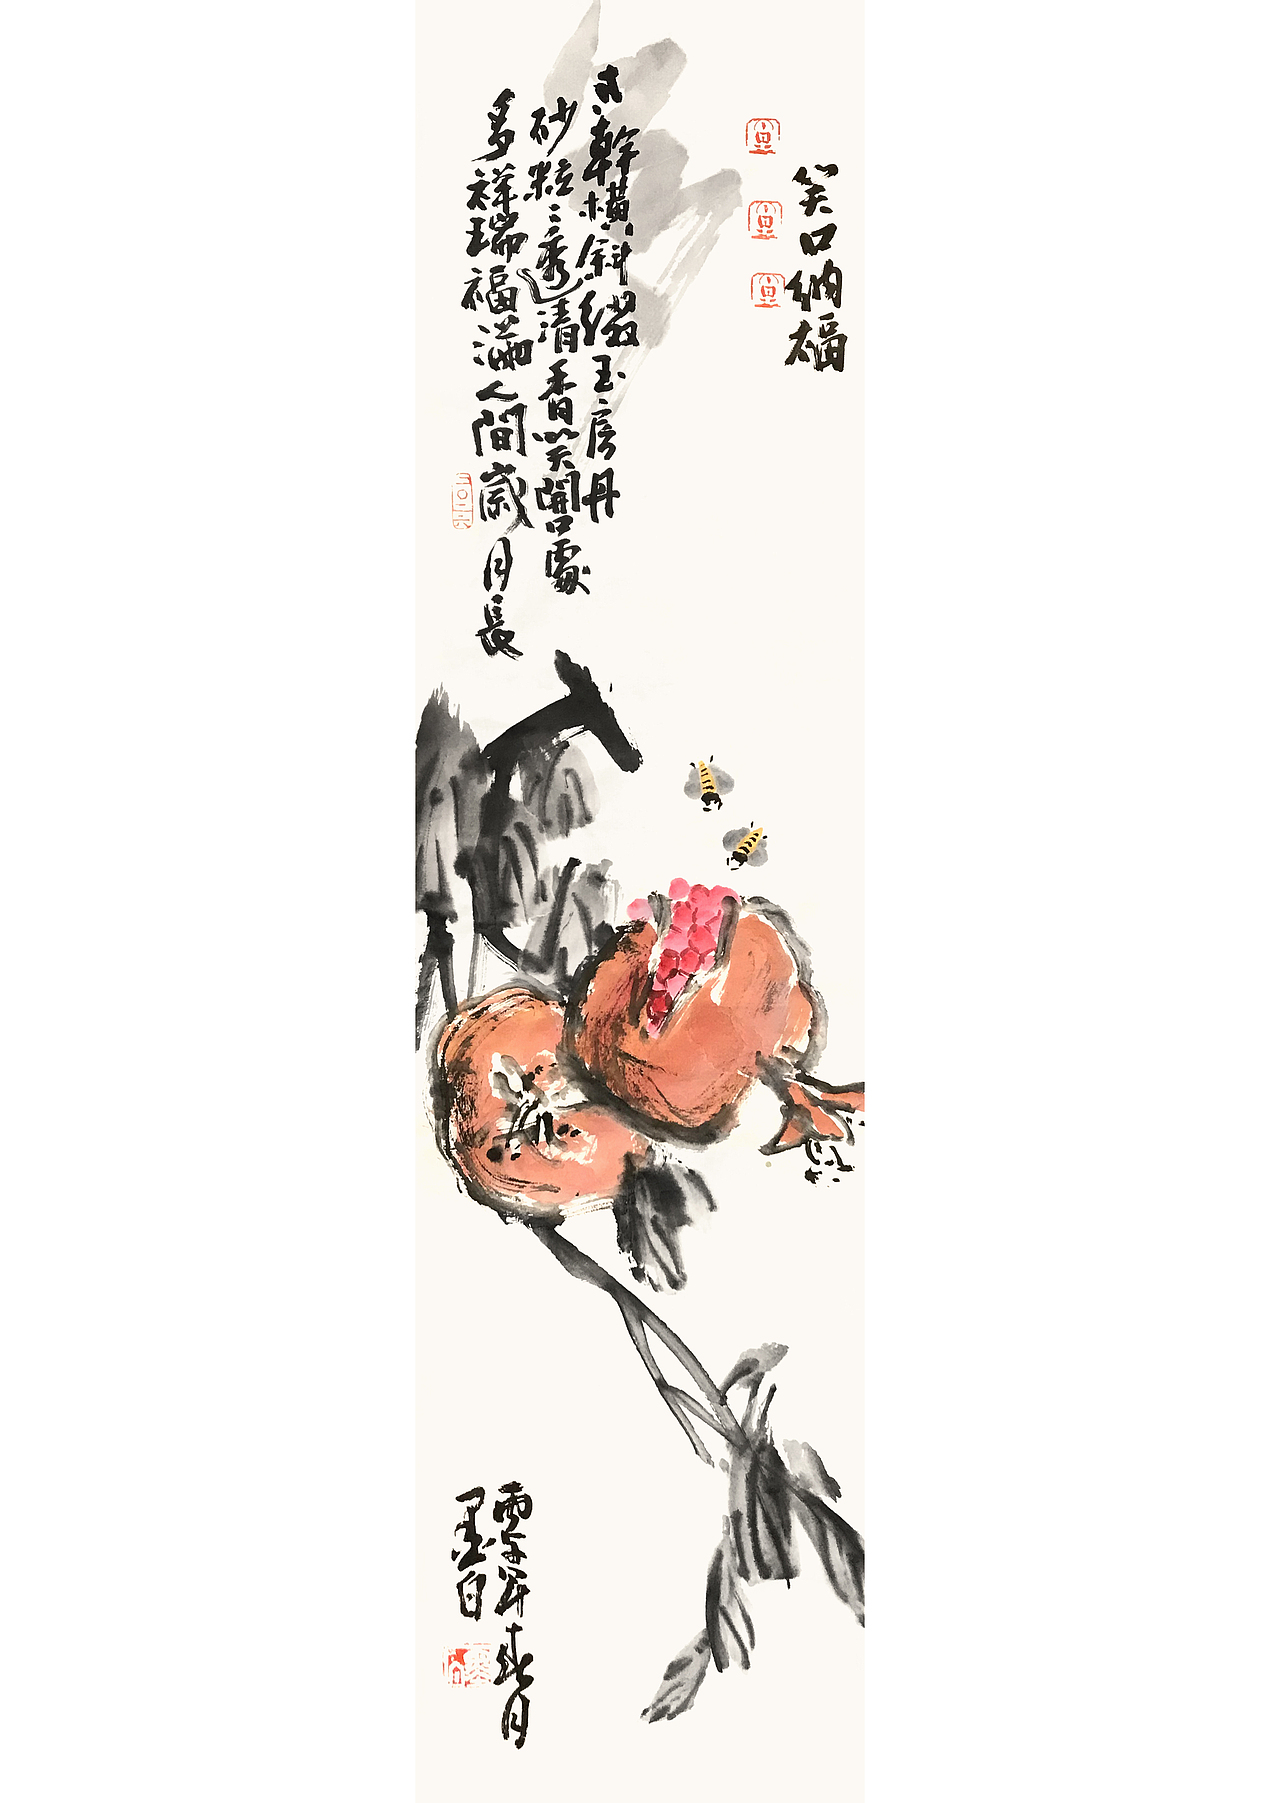 笑口納福
幹橫斜綴玉房丹
砂粒〻透清香笑開口處
多祥瑞福滿人間歲月長
二〇二六
丙午年春月
墨白